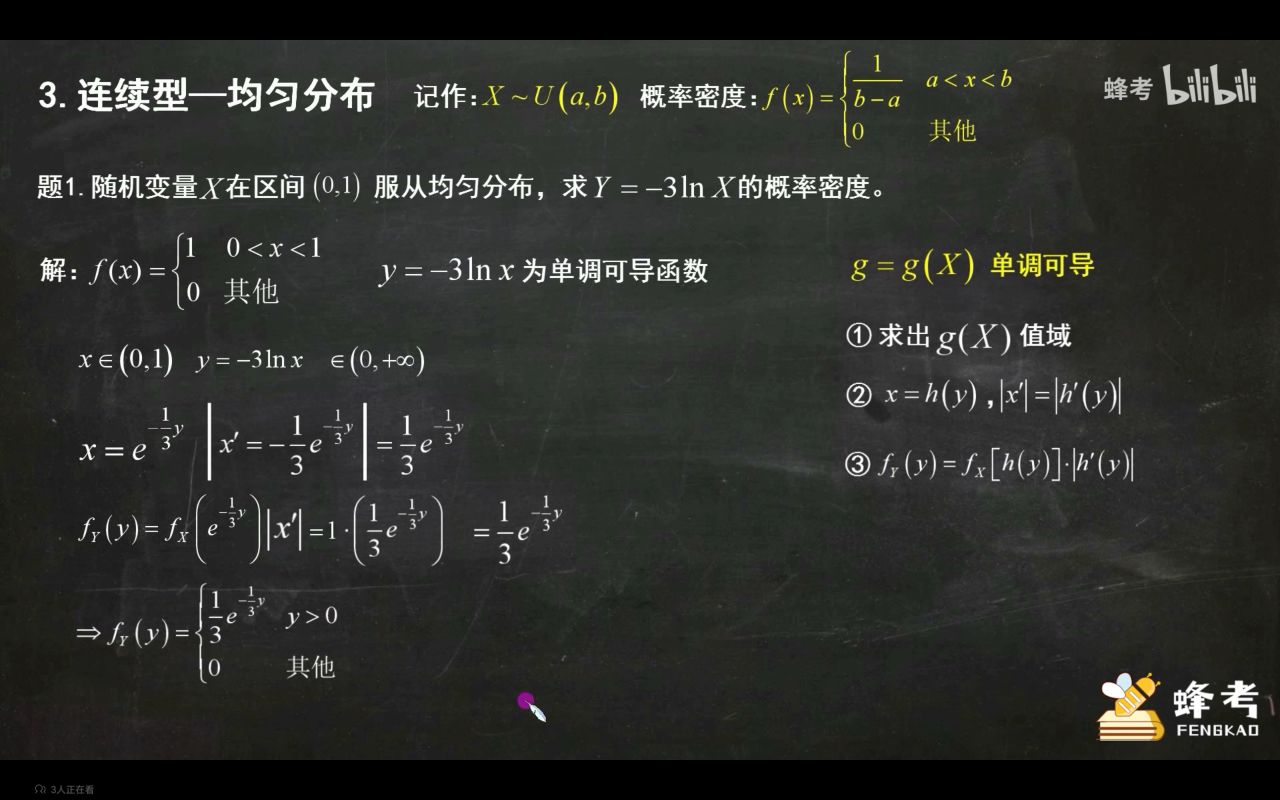 3.连续型—均匀分布 记作:X ~ U(a,b) 概率密度:f(x)={1/(b−a) a<x<b; 0 其他
蜂考 bilibili
题1.随机变量X在区间(0,1) 服从均匀分布，求Y = −3ln X的概率密度。
解：f(x)={1 0<x<1; 0 其他 y = −3ln x 为单调可导函数
x∈(0,1) y = −3ln x ∈(0,+∞)
x = e^(−1/3 y) |x′ = −1/3 e^(−1/3 y)| = 1/3 e^(−1/3 y)
f_Y(y) = f_X(e^(−1/3 y))|x′| = 1·(1/3 e^(−1/3 y)) = 1/3 e^(−1/3 y)
⇒ f_Y(y)={1/3 e^(−1/3 y) y>0; 0 其他
g = g(X) 单调可导
① 求出 g(X) 值域
② x = h(y) ，|x′| = |h′(y)|
③ f_Y(y) = f_X[h(y)]·|h′(y)|
蜂考
FENGKAO
3人正在看